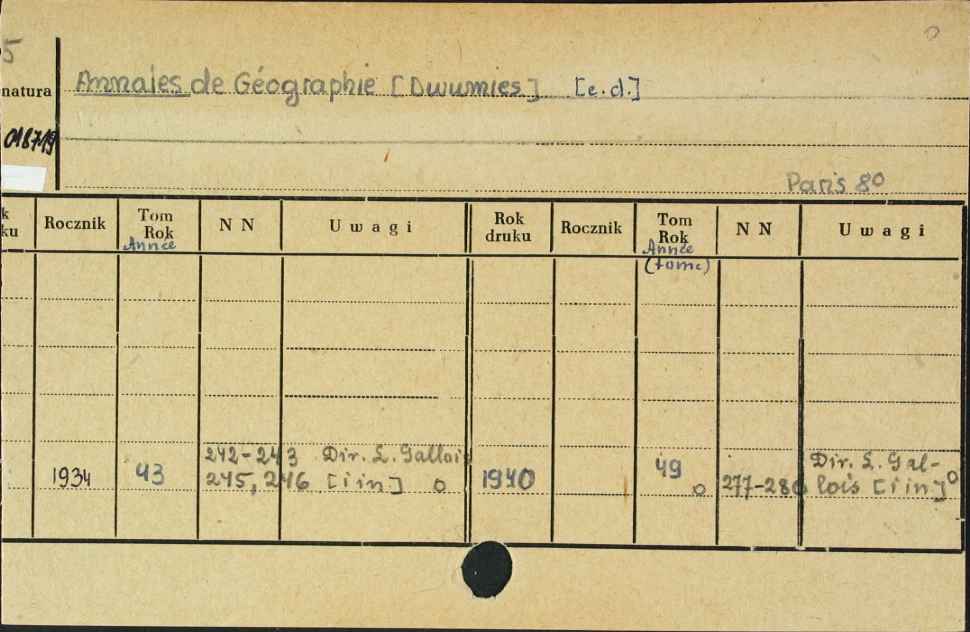 5
natura
Annales de Géographie [Dwumies.] [c.d.]
018719
Paris 8°
k
ku
Rocznik
Tom
Rok
Année
N N
Uwagi
Rok
druku
Rocznik
Tom
Rok
Année
(tome)
N N
Uwagi
1934
43
242-243
245, 246
Dir. L. Gallois
[i in] o
1940
49
o
277-280
Dir. L. Gal-
lois [i in] o